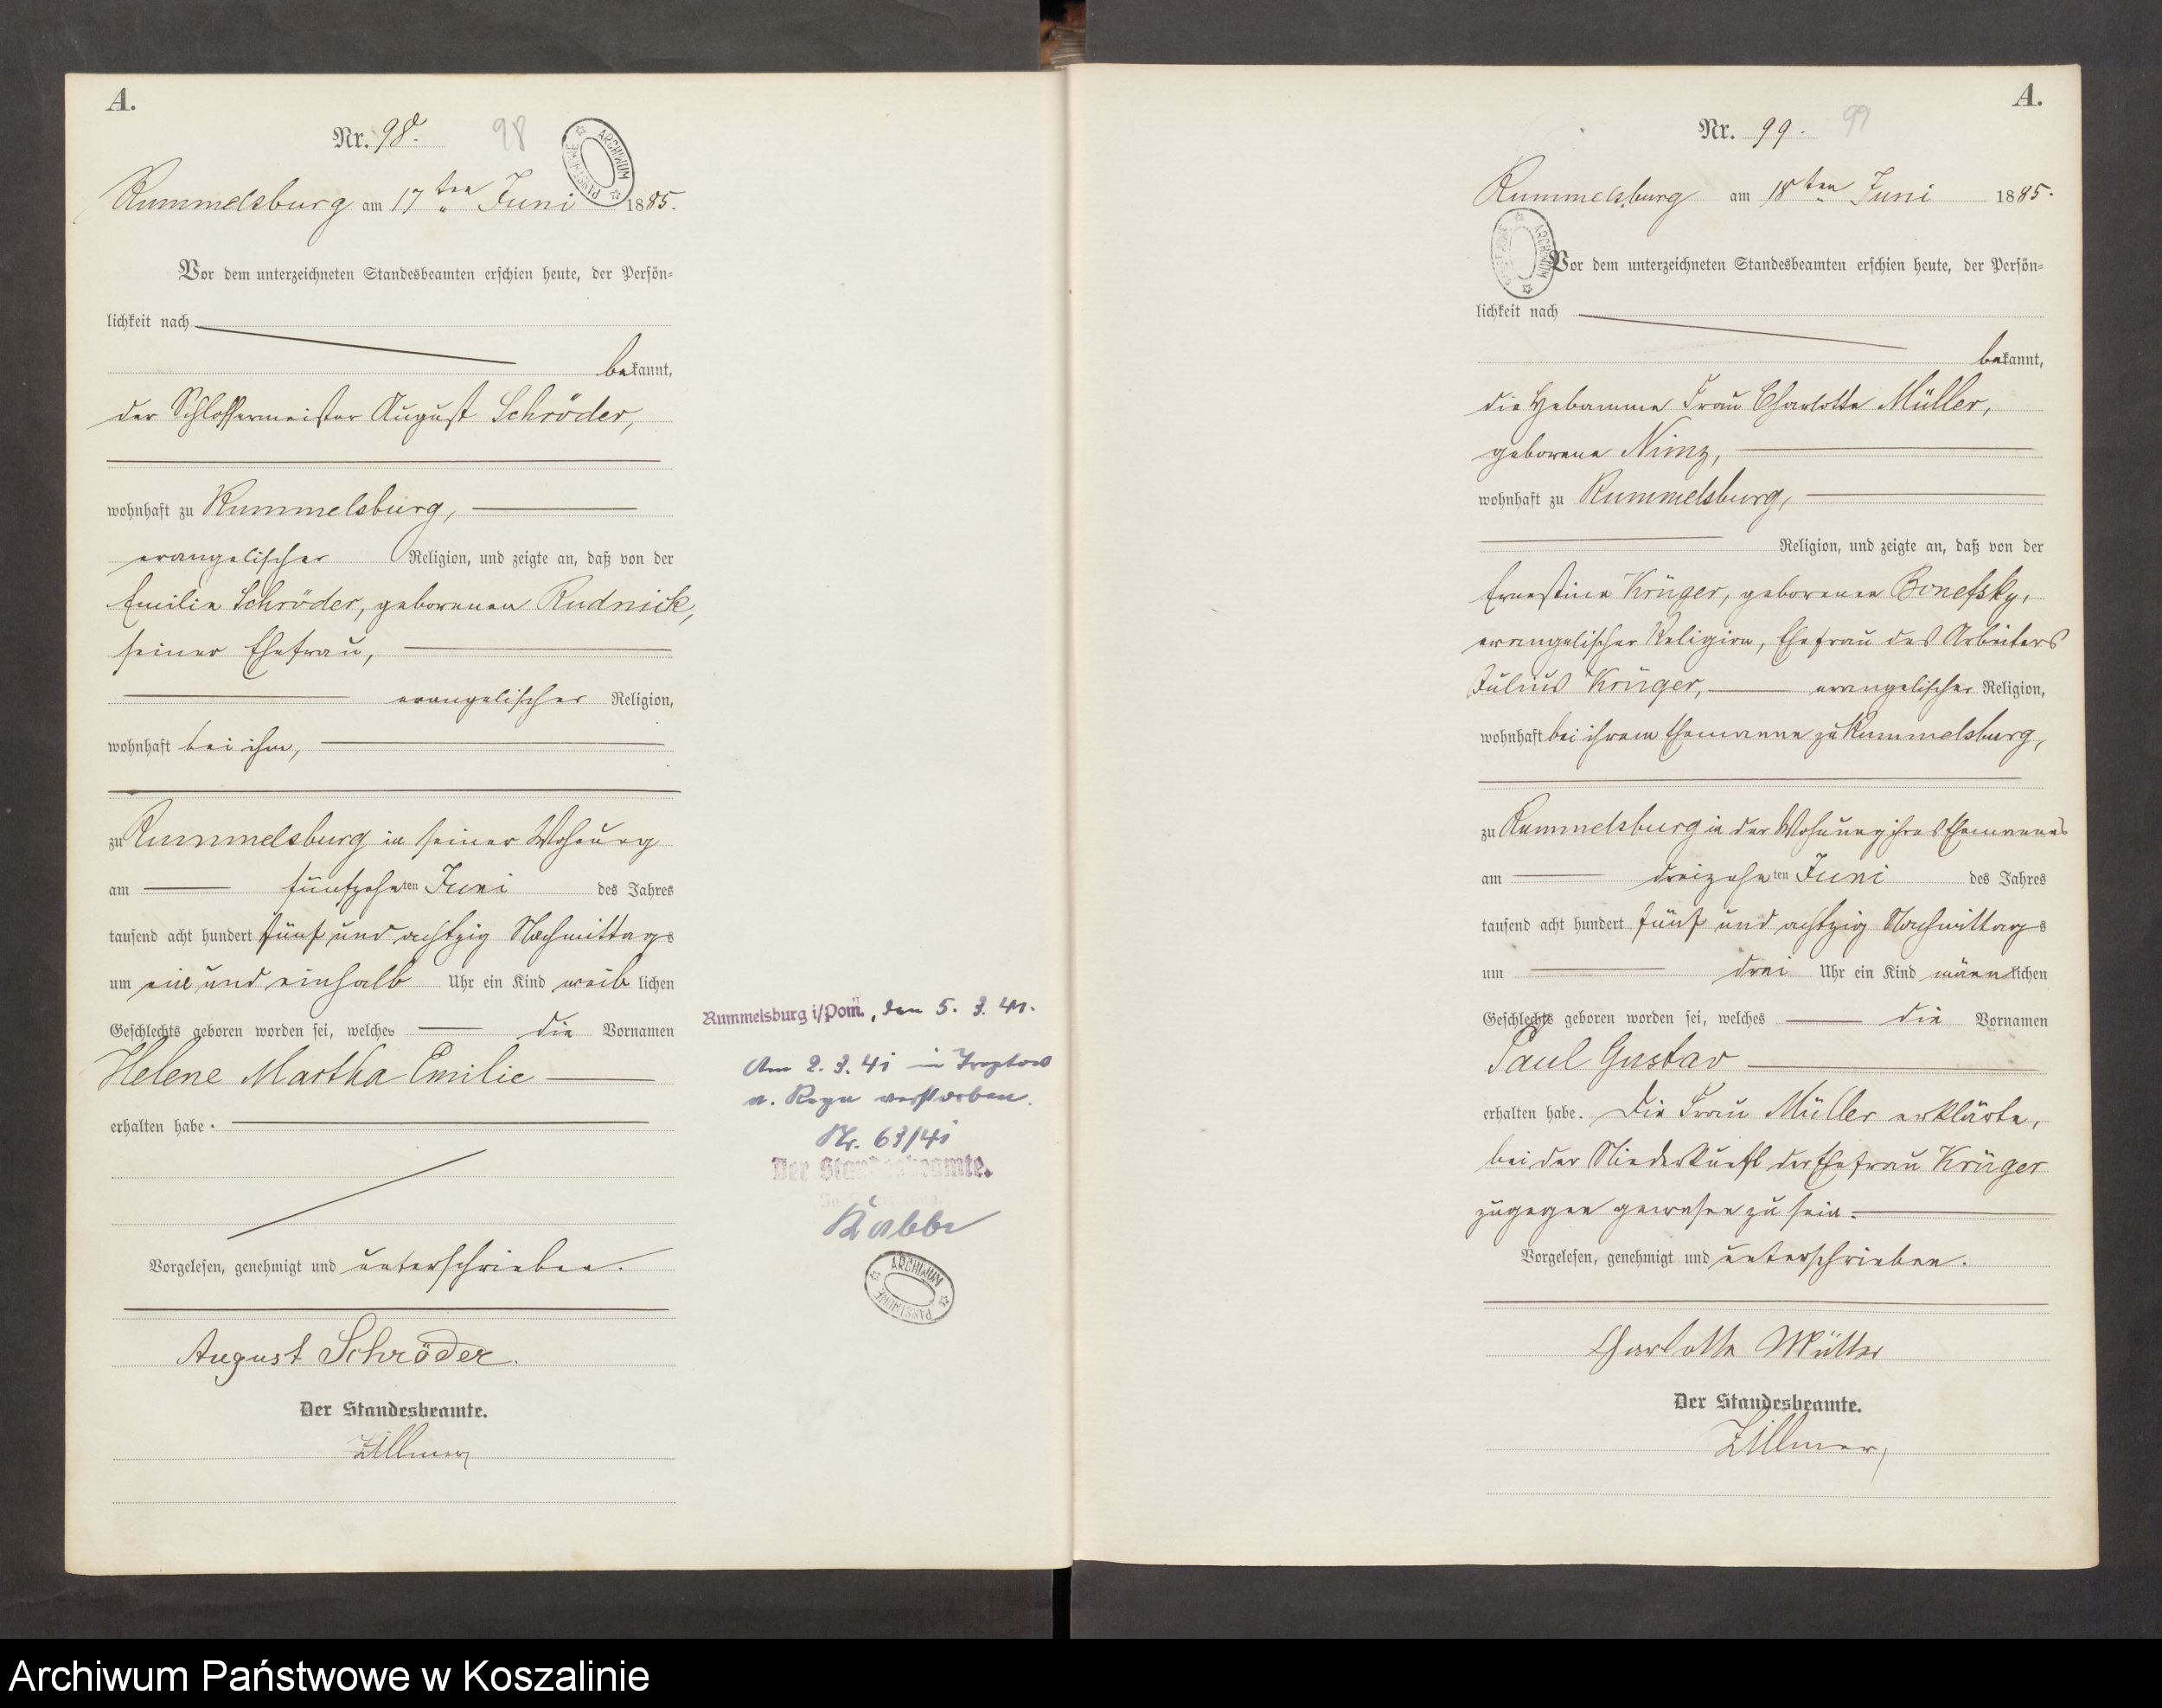 A.
Nr. 98. 98
ARCHIWUM PAŃSTWOWE
Rummelsburg am 17ten Juni 1885.
Vor dem unterzeichneten Standesbeamten erschien heute, der Persön=
lichkeit nach
bekannt,
der Schlossermeister August Schröder,
wohnhaft zu Rummelsburg,
evangelischer Religion, und zeigte an, daß von der
Emilie Schröder, geborenen Rudnick,
seiner Ehefrau,
evangelischer Religion,
wohnhaft bei ihm,
zu Rummelsburg in seiner Wohnung
am fünfzehnten Juni des Jahres
tausend acht hundert fünf und achtzig Nachmittags
um ein und einhalb Uhr ein Kind weiblichen
Geschlechts geboren worden sei, welches die Vornamen
Helene Martha Emilie
erhalten habe.
Vorgelesen, genehmigt und unterschrieben.
August Schröder.
Der Standesbeamte.
Zillmer
Rummelsburg i/Pom., den 5. 3. 41.
Am 2. 3. 41 in Treptow
a. Rega verstorben.
Nr. 63/41
Der Standesbeamte.
In Vertretung
Rabbe
ARCHIWUM PAŃSTWOWE
A.
Nr. 99. 99
Rummelsburg am 18ten Juni 1885.
ARCHIWUM PAŃSTWOWE
Vor dem unterzeichneten Standesbeamten erschien heute, der Persön=
lichkeit nach
bekannt,
die Hebamme Frau Charlotte Müller,
geborene Nimz,
wohnhaft zu Rummelsburg,
Religion, und zeigte an, daß von der
Ernestine Krüger, geborenen Bonefsky,
evangelischer Religion, Ehefrau des Arbeiters
Julius Krüger, evangelischer Religion,
wohnhaft bei ihrem Ehemanne zu Rummelsburg,
zu Rummelsburg in der Wohnung ihres Ehemannes
am dreizehnten Juni des Jahres
tausend acht hundert fünf und achtzig Nachmittags
um drei Uhr ein Kind männlichen
Geschlechts geboren worden sei, welches die Vornamen
Paul Gustav
erhalten habe. Die Frau Müller erklärte,
bei der Niederkunft der Ehefrau Krüger
zugegen gewesen zu sein.
Vorgelesen, genehmigt und unterschrieben.
Charlotte Müller
Der Standesbeamte.
Zillmer
Archiwum Państwowe w Koszalinie